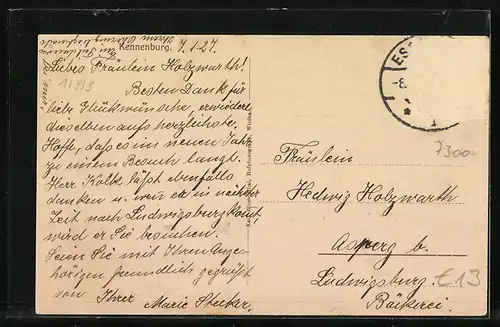 Kennenburg. 7.1.27.
Liebes Fräulein Holzwarth!
Besten Dank für
liebe Glückwünsche, erwiedere
dieselben aufs herzlichste,
Hoffe, daß es im neuen Jahr
zu einem Besuch langt.
Herr Kolk läßt ebenfalls
danken u. wen er in nächster
Zeit nach Ludwigsburg komt,
wird er Sie besuchen.
Seien Sie mit Ihren Ange-
hörigen freundlich gegrüßt
von Ihrer Marie Stuber.
ES
-8.
7300
Fräulein
Hedwig Holzwarth
Asperg b.
Ludwigsburg.
Bäckerei.
€ 13